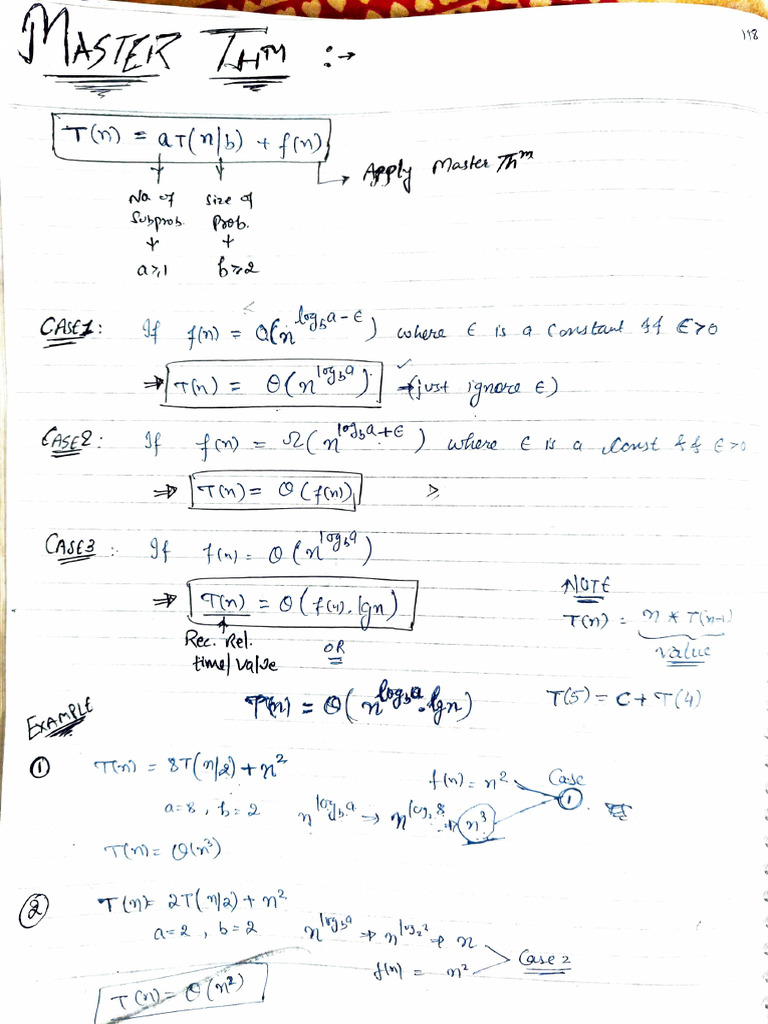 118
MASTER THM :→
T(n) = aT(n/b) + f(n)
→ Apply Master Thm
No. of Subprob. ↓ a≥1
Size of Prob. ↓ b≥2
CASE1: If f(n) = O(n^(log_b a - ε)) where ε is a constant && ε>0
⇒ T(n) = Θ(n^(log_b a)) → (just ignore ε)
CASE2: If f(n) = Ω(n^(log_b a + ε)) where ε is a Const && ε>0
⇒ T(n) = Θ(f(n))
CASE3: If f(n) = Θ(n^(log_b a))
⇒ T(n) = Θ(f(n). lgn)
Rec. Rel. time/value
OR
T(n) = Θ(n^(log_b a). lgn)
NOTE
T(n) = n * T(n-1)
value
T(5) = C + T(4)
EXAMPLE
① T(n) = 8T(n/2) + n²
a=8, b=2
n^(log_b a) → n^(log_2 8) → n³
f(n) = n²
Case ①.
T(n) = Θ(n³)
② T(n) = 2T(n/2) + n²
a=2, b=2
n^(log_b a) ⇒ n^(log_2 2) ⇒ n
f(n) = n²
Case 2
T(n) = Θ(n²)